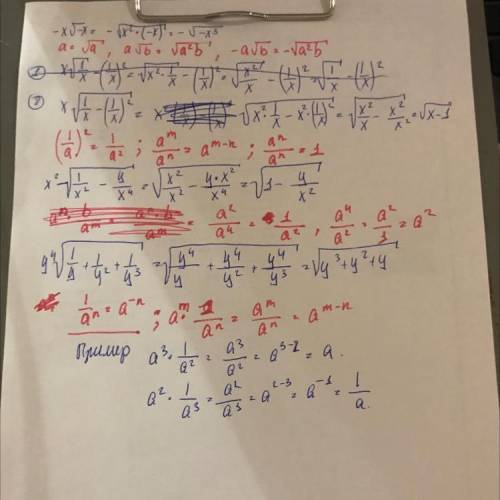 -x√-x = -√x²·(-x) = -√-x³
a = √a², a√b = √a²b, -a√b = -√a²b
② x√1/x - (1/x)² = √x²·1/x - (1/x)² = √x²/x - (1/x)² = √1/x - (1/x)²
② x√1/x - (1/x)² = x √x²·1/x - x²·(1/x)² = √x²/x - x²/x² = √x-1
(1/a)² = 1/a² ; aᵐ/aⁿ = aᵐ⁻ⁿ ; aⁿ/aⁿ = 1
x²√1/x² - y/x⁴ = √x²/x² - y·x²/x⁴ = √1 - y/x²
= a²/a⁴ = 1/a² , a⁴/a² = a²/1 = a²
y⁴√1/y + 1/y² + 1/y³ = √y⁴/y + y⁴/y² + y⁴/y³ = √y³+y²+y
1/aⁿ = a⁻ⁿ ; aᵐ· 1/aⁿ = aᵐ/aⁿ = aᵐ⁻ⁿ
Пример a³·1/a² = a³/a² = a³⁻² = a.
a²·1/a³ = a²/a³ = a²⁻³ = a⁻¹ = 1/a.